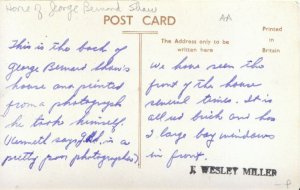 Home of George Bernard Shaw
POST CARD
AA
Printed
in
Britain
The Address only to be
written here
This is the back of
George Bernard Shaw's
house and printed
from a photograph
he took himself.
(Kenneth says GBS is a
pretty poor photographer)
We have seen the
front of the house
several times. It is
all red brick and has
3 large bay windows
in front.
J. WESLEY MILLER